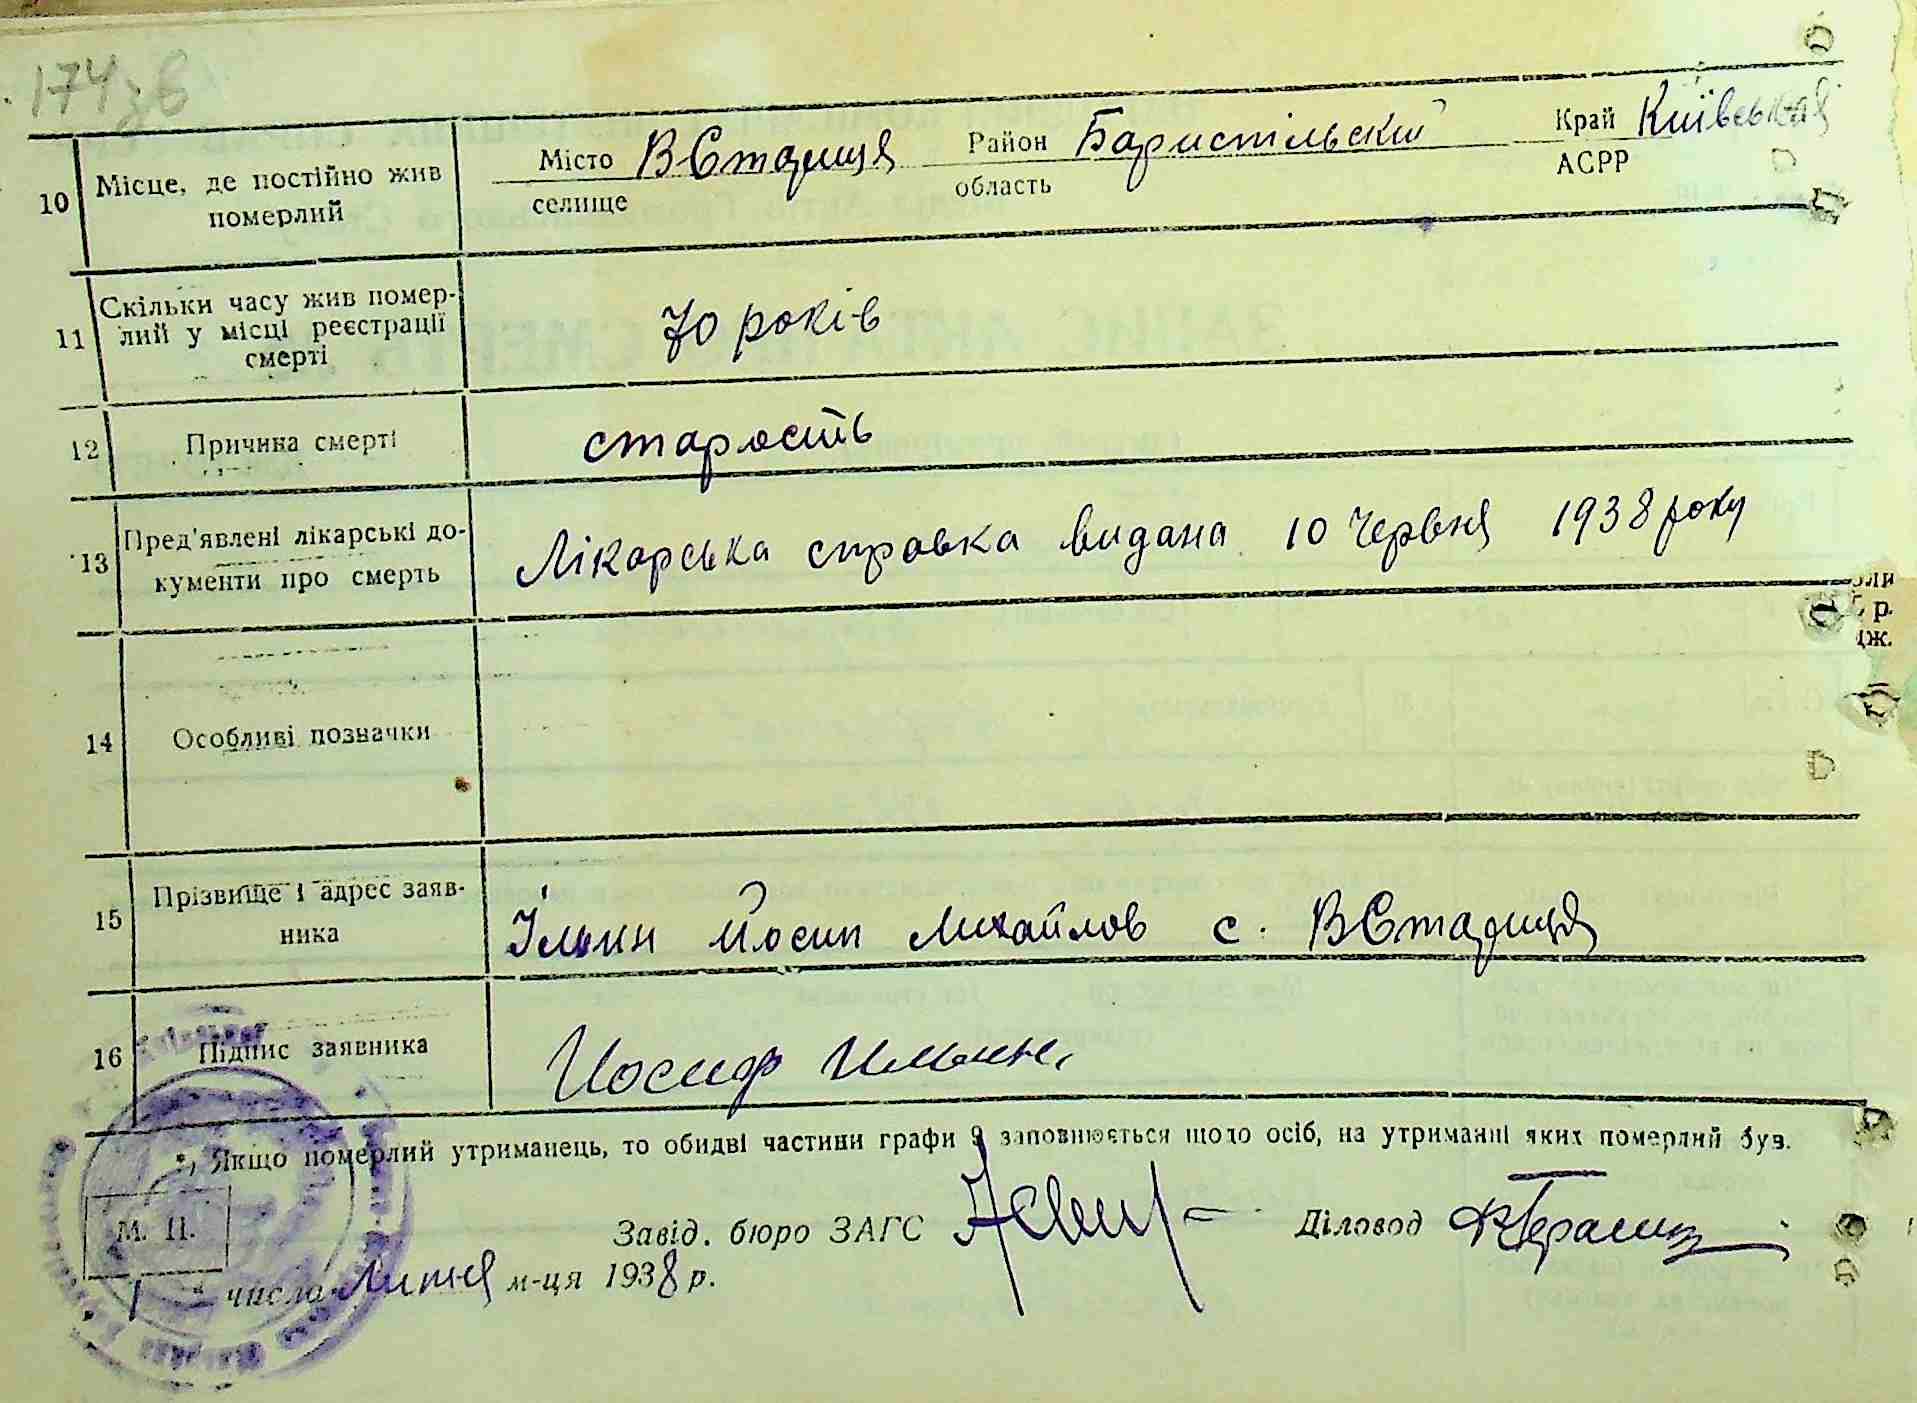 174зв
10 Місце, де постійно жив померлий Місто селище ВСтариця Район область Бариспільский Край АСРР Київська
11 Скільки часу жив померлий у місці реєстрації смерті 70 років
12 Причина смерті старость
13 Пред'явлені лікарські документи про смерть Лікарська справка видана 10 Червня 1938 року
14 Особливі позначки
15 Прізвище і адрес заявника Ільин Йосип Михайлов с. ВСтариця
16 Підпис заявника Иосиф Ильин.
*) Якщо померлий утриманець, то обидві частини графи 9 заповнюється щодо осіб, на утриманні яких померлий був.
М. П. Завід. бюро ЗАГС Діловод
1 " числа Липня м-ця 1938 р.